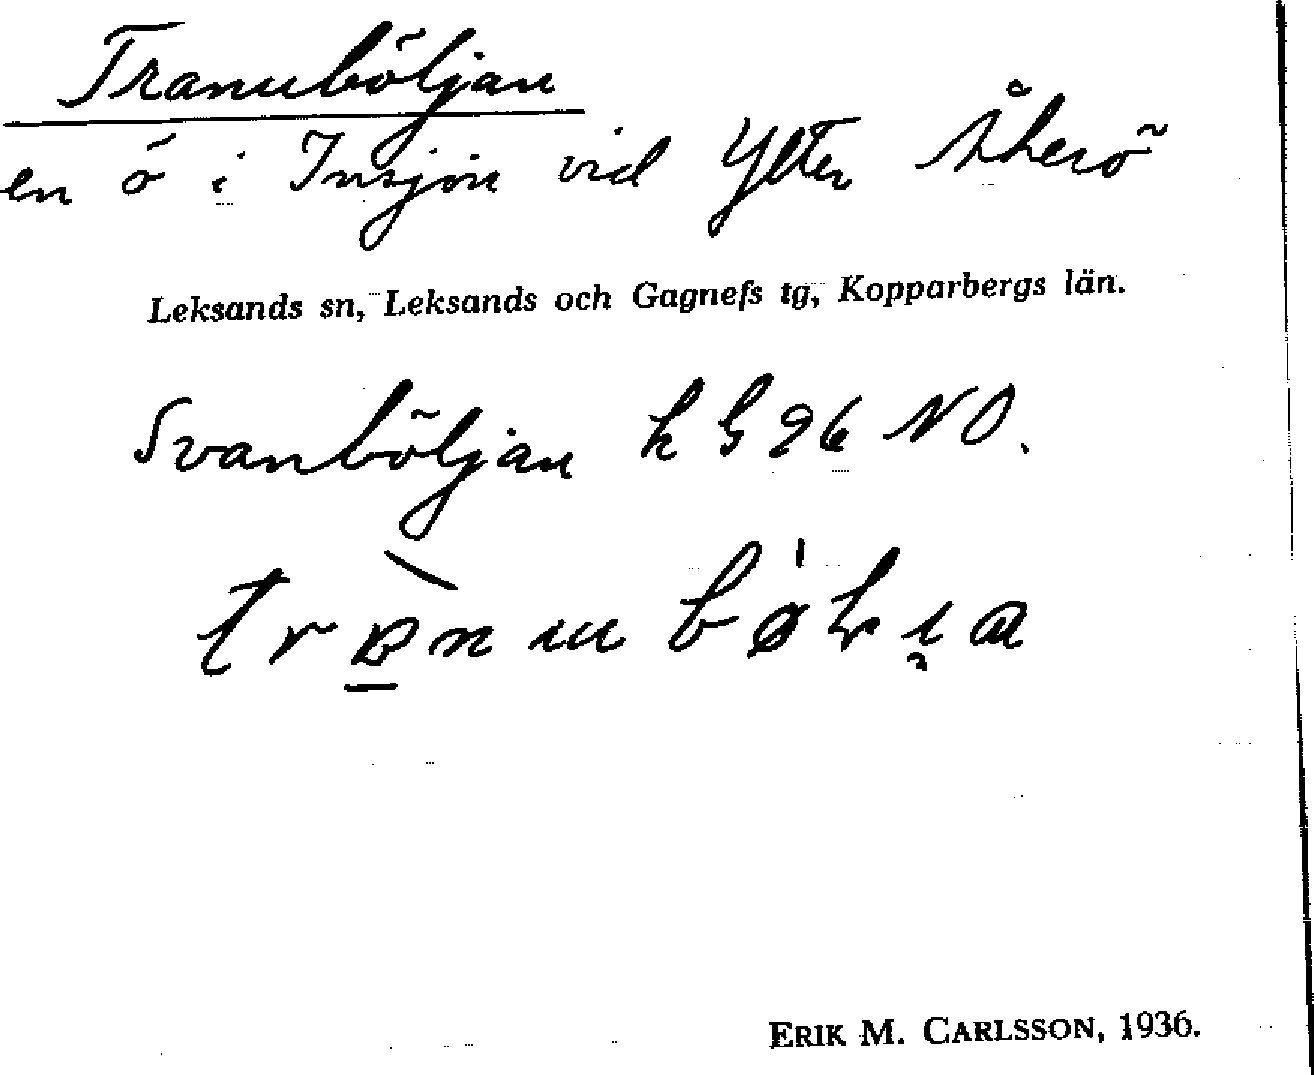 Tranuböljan
en ö i Insjön vid Ytter Åkerö
Leksands sn, Leksands och Gagnefs tg, Kopparbergs län.
Svanböljan k G 96 NO.
ERIK M. CARLSSON, 1936.